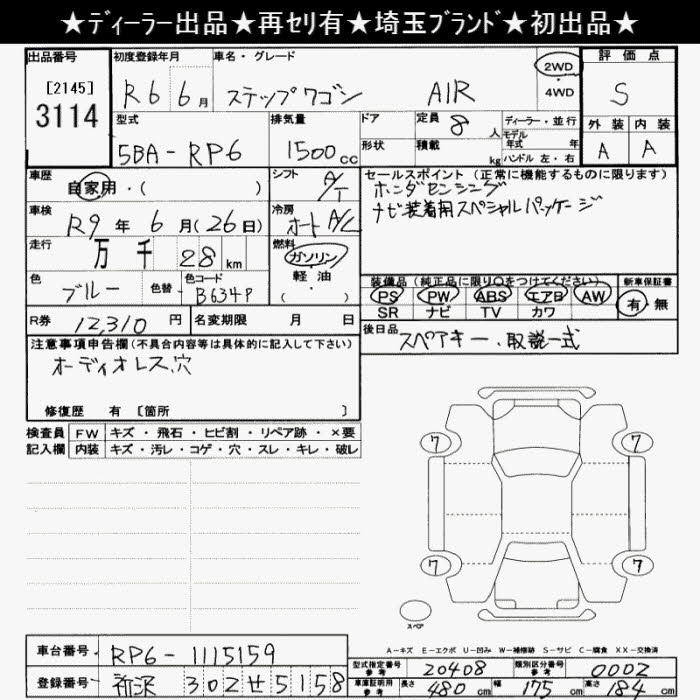 ★ディーラー出品★再セリ有★埼玉ブランド★初出品★
出品番号 初度登録年月 車名・グレード 評価点
[2145] R6 6月 ステップワゴン AIR 2WD ・ 4WD S
3114
型式 排気量 ドア 定員 8 人 ディーラー・並行 外装 内装
5BA-RP6 1500cc 形状 積載 kg モデル年式 年 A A
ハンドル 左・右
車歴 自家用・( ) シフト A/T セールスポイント (正常に機能するものに限ります)
ホンダセンシング
車検 R9年 6月(26日) 冷房 オートA/C ナビ装着用スペシャルパッケージ
走行 万 千 28 km 燃料 ガソリン・軽油・( )
色 ブルー 色替 色コード B634P
装備品 (純正品に限り○をつけてください) 新車保証書
PS PW ABS エアB AW 有・無
SR ナビ TV カワ
R券 12,310円 名変期限 月 日 後日品 スペアキー、取説一式
注意事項申告欄(不具合内容等は具体的に記入して下さい)
オーディオレス穴
修復歴 有 [箇所 ]
検査員記入欄 FW キズ・飛石・ヒビ割・リペア跡・×要
内装 キズ・汚レ・コゲ・穴・スレ・キレ・破レ
7 7
7 7
スペア
A-キズ E-エクボ U-凹み W-補修跡 S-サビ C-腐食 XX-交換済
車台番号 RP6-1115159
型式指定番号 参考 20408 類別区分番号 参考 0002
登録番号 所沢 302せ5158
車庫証明用 参考 長さ 480cm 幅 175cm 高さ 184cm